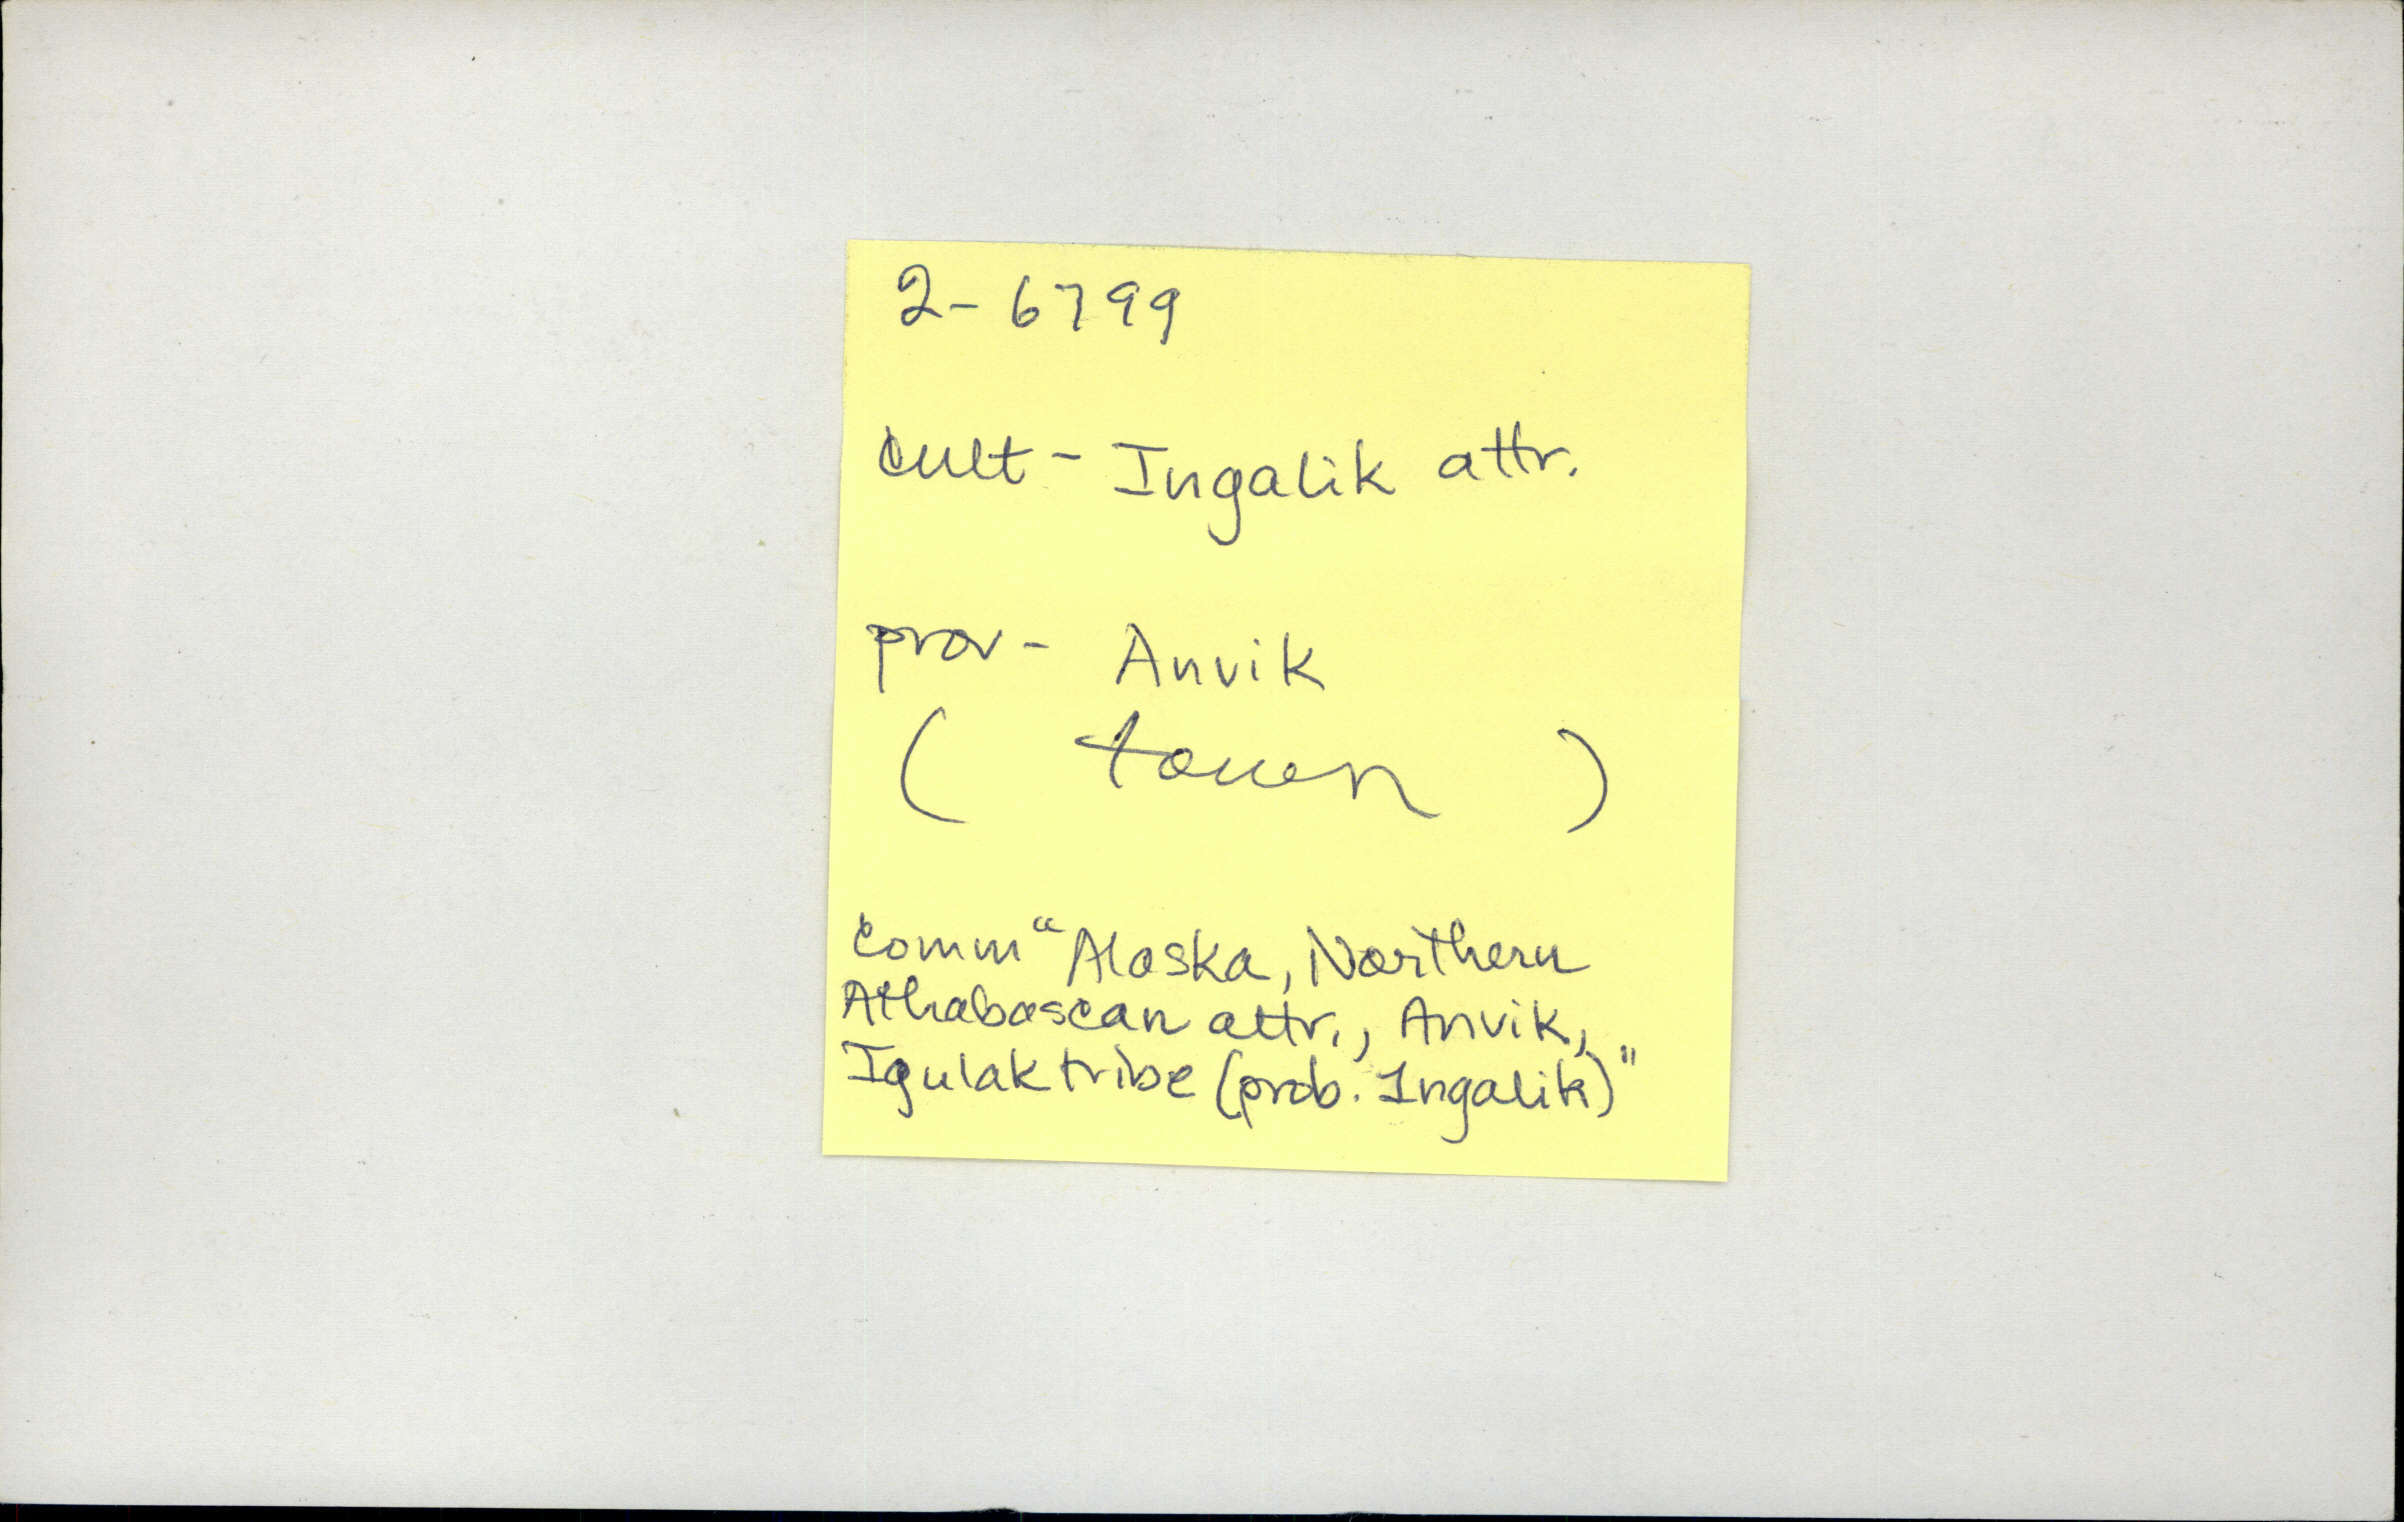 2-6799
cult - Ingalik attr.
prov - Anvik
( town )
comm "Alaska, Northern
Athabascan attr., Anvik,
Igulak tribe (prob. Ingalik)"